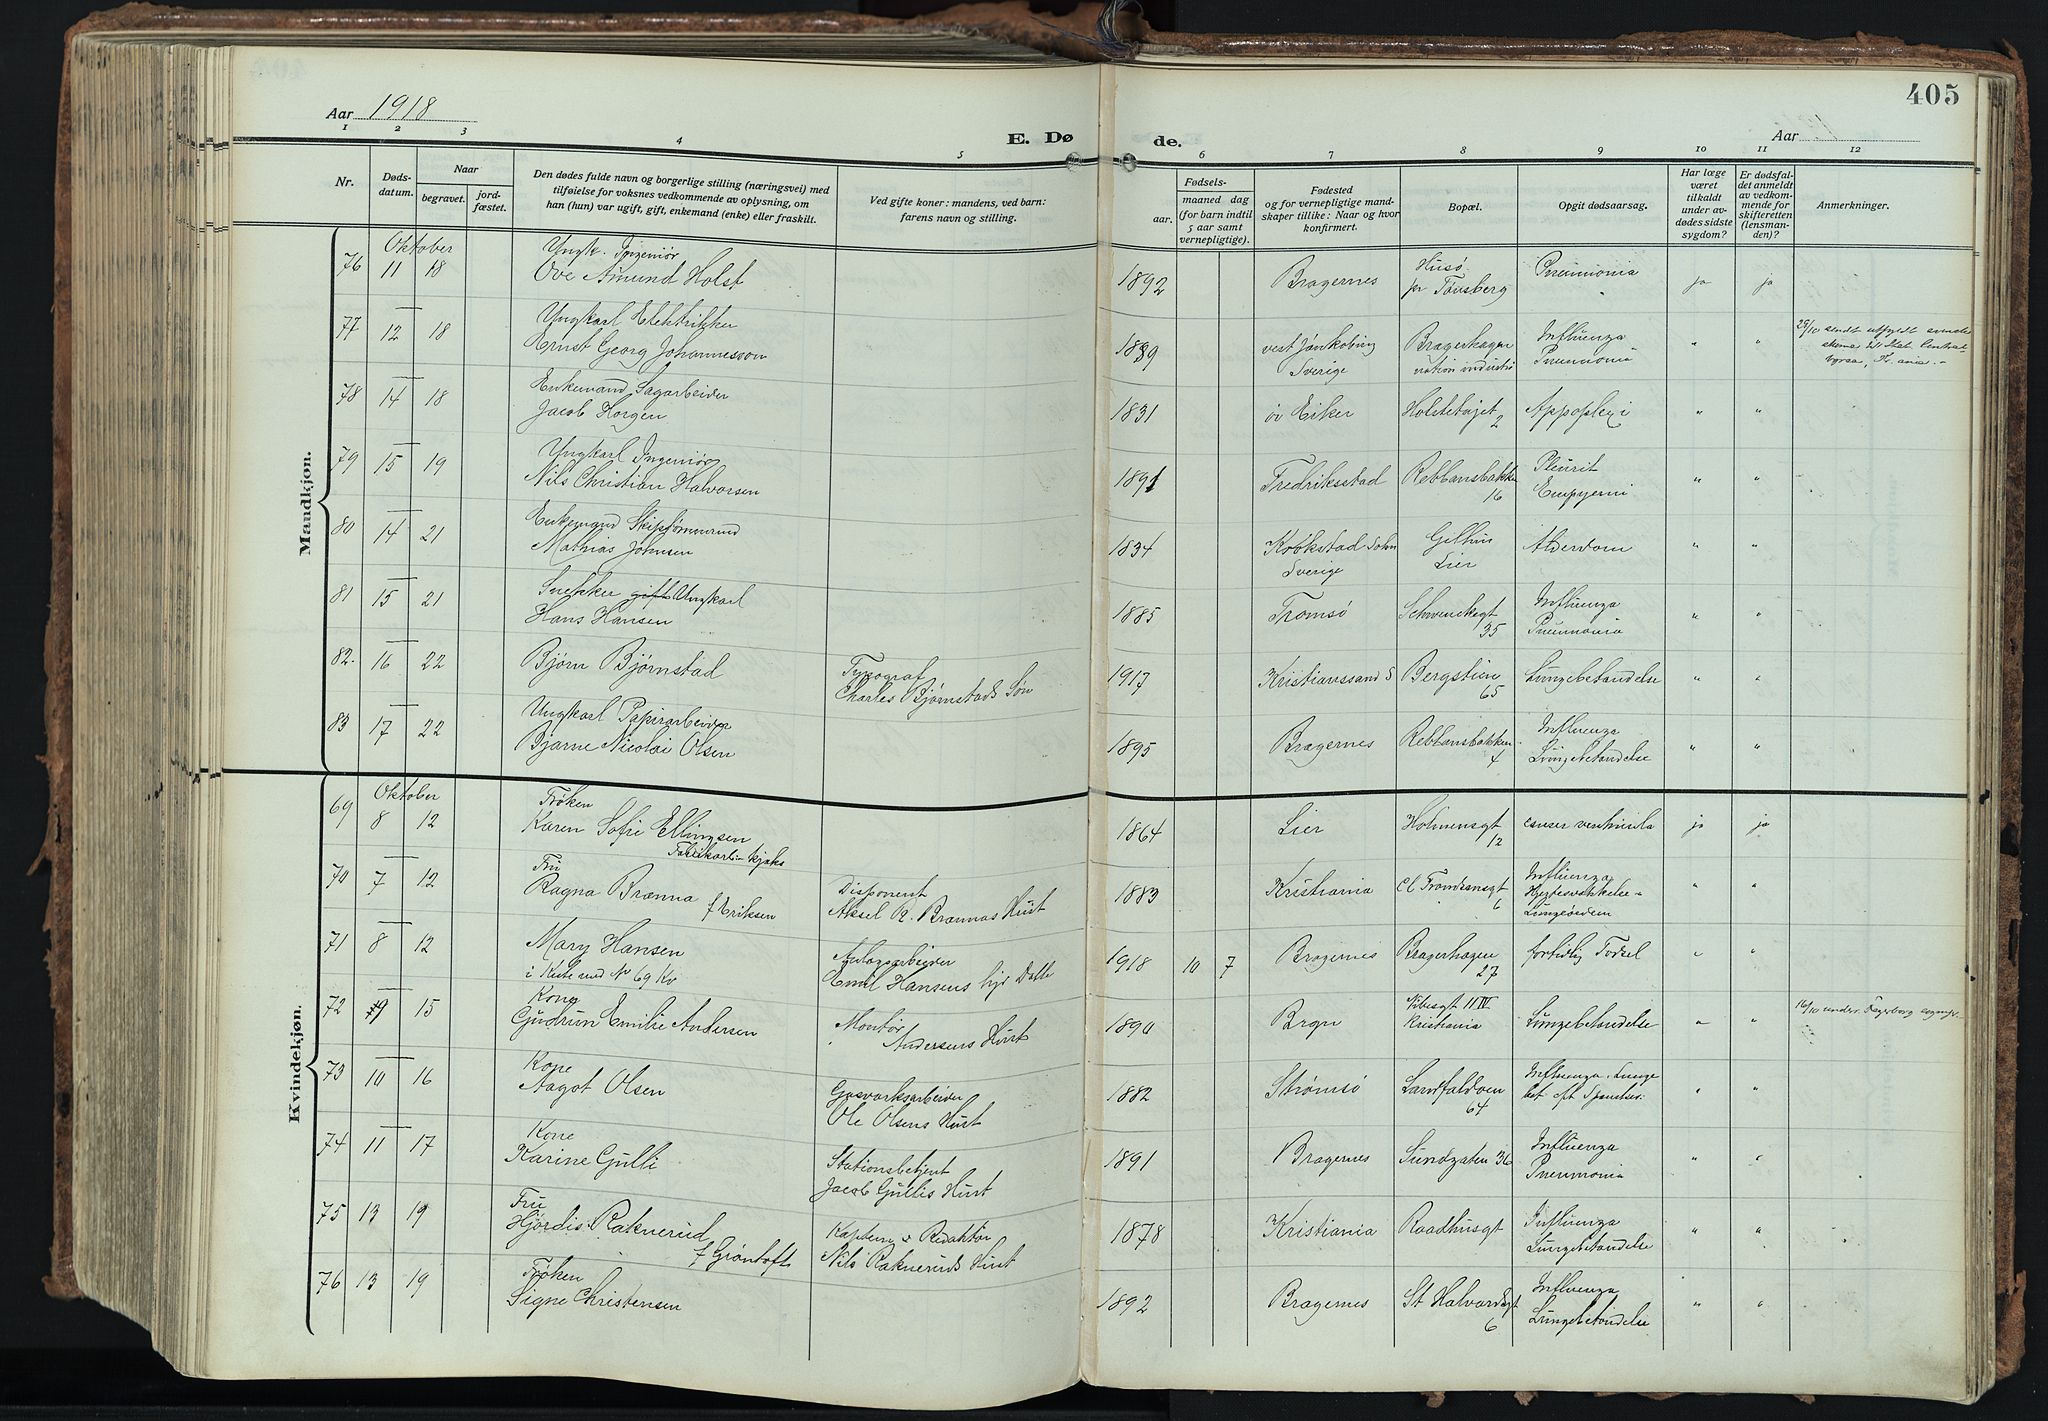 405
Aar 1918
E. Dø
de.
Aar
1 2 3 4 5 6 7 8 9 10 11 12
Nr.
Døds-
datum.
Naar
begravet.
jord-
fæstet.
Den dødes fulde navn og borgerlige stilling (næringsvei) med
tilføielse for voksnes vedkommende av oplysning, om
han (hun) var ugift, gift, enkemand (enke) eller fraskilt.
Ved gifte koner: mandens, ved barn:
farens navn og stilling.
Fødsels-
aar.
maaned dag
(for barn indtil
5 aar samt
vernepligtige).
Fødested
og for vernepligtige mand-
skaper tillike: Naar og hvor
konfirmert.
Bopæl.
Opgit dødsaarsag.
Har læge
været
tilkaldt
under av-
dødes sidste
sygdom?
Er dødsfal-
det anmeldt
av vedkom-
mende for
skifteretten
(lensman-
den)?
Anmerkninger.
Mandkjøn.
Oktober
Ungk. Ingeniør
76 11 18 Ove Amund Holst 1892 Bragernes Husø pr Tønsberg Pneumonia ja ja
Ungkarl Elektrikker
77 12 18 Ernst Georg Johannesson 1889 vest Jønkobing Sverige Bragerhagen Influenza Pneumonia " "
25/10 sendt utfyldt svenske
skema til Stat. Central-
byraa, Kr.ania.
Enkemand Sagarbeider
78 14 18 Jacob Horgen 1831 øv Eiker 2 Appoplexi " "
Ungkarl Ingeniør
79 15 19 Nils Christian Halvorsen 1891 Fredriksstad Rebbansbakken 16 Pleurit Empyemi " "
Enkemand Skipsførmand
80 14 21 Mathias Johnsen 1834 Krokstad Sverige Gilhus Lier Alderdom " "
Snekker gift Ungkarl
81 15 21 Hans Hansen 1885 Tromsø Schwenckegt 35 Influenza Pneumonia " "
82. 16 22 Bjørn Bjørnstad Typograf Charles Bjørnstads Søn 1917 Kristianssand S Bergstien 65 Lungebetændelse " "
Ungkarl Papirarbeider
83 17 22 Bjarne Nicolai Olsen 1895 Bragernes Rebbansbakken 4 Influenza Lungebetændelse " "
Kvindekjøn.
Oktober
Frøken
69 8 12 Karen Sofie Ellingsen 1864 Lier Holmensgt 12 cancer ventriculi ja ja
Fru
70 7 12 Ragna Brænna f Eriksen Disponent Aksel R. Brænnas Hust 1883 Kristiania Cl Trondsensgt 6 Influenza Lungeødem " "
71 8 12 Mary Hansen Anlægsarbeider Emil Hansens Datter 1918 10 7 Bragernes Bragerhagen 27 fortidlig Fødsel " "
i Kiste med No 69 Kv
Kone
72 9 15 Gudrun Emilie Andersen Montør Andersens Hust 1890 Brgn Vibesgt 11 IV Kristiania Lungebetændelse " "
16/10 underr. Fagerborg sognepr.
Kone
73 10 16 Aagot Olsen Gasverksarbeider Ole Olsens Hust 1882 Strømsø Landfaldøen 64 Influenza Lunge bet eft " "
Kone
74 11 17 Karine Gulli Stationsbetjent Jacob Gullis Hust 1891 Bragernes Sundgaten 36 Influenza Pneumonia " "
Fru
75 13 19 Hjørdis Raknerud f Grøntoft Kaptein & Redaktør Nils Rakneruds Hust 1878 Kristiania Raadhusgt Influenza Lungebetændelse " "
Frøken
76 13 19 Signe Christensen 1892 Bragernes St Halvardsgt 6 Influenza Lungebetændelse " "